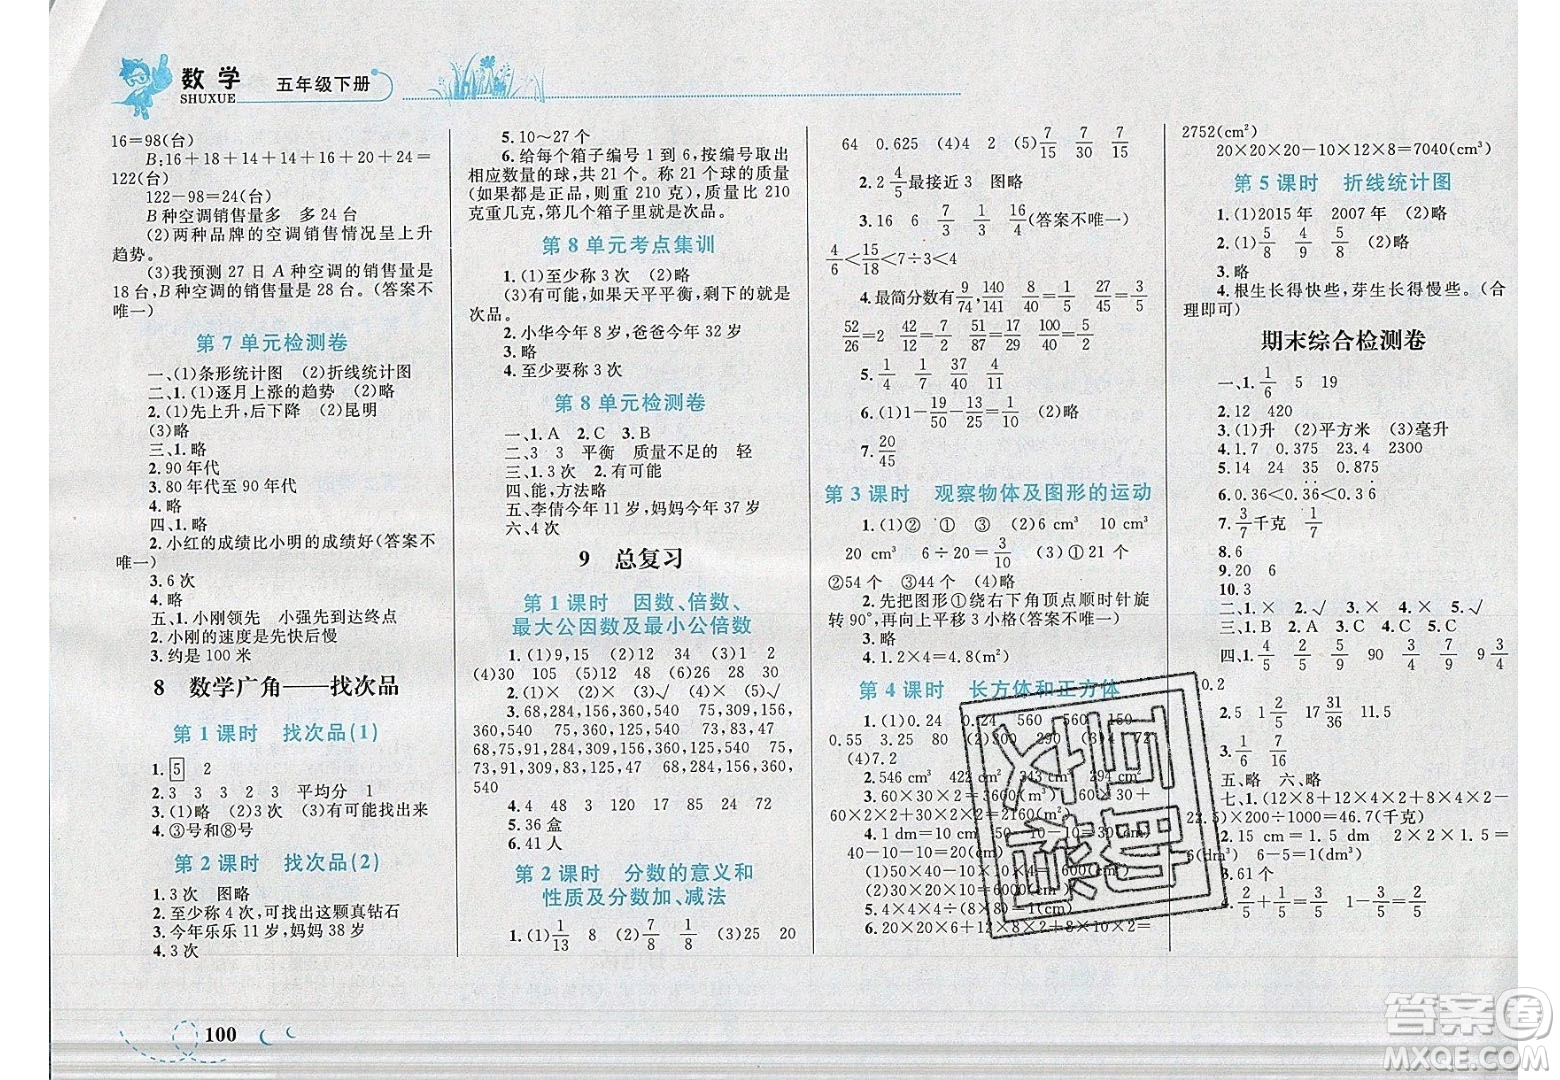 数学
SHUXUE
五年级下册
16=98(台)
B:16+18+14+14+16+20+24=
122(台)
122-98=24(台)
B种空调销售量多 多24台
(2)两种品牌的空调销售情况呈上升
趋势。
(3)我预测27日A种空调的销售量是
18台,B种空调的销售量是28台。(答案不
唯一)
第7单元检测卷
一、(1)条形统计图 (2)折线统计图
二、1.(1)逐月上涨的趋势 (2)略
2.(1)先上升,后下降 (2)昆明
(3)略
三、1.略
2.90年代
3.80年代至90年代
4.略
四、1.略
2.小红的成绩比小明的成绩好(答案不
唯一)
3.6次
4.略
五、1.小刚领先 小强先到达终点
2.小刚的速度是先快后慢
3.约是100米
8 数学广角——找次品
第1课时 找次品(1)
1.5 2
2.3 3 3 2 3 平均分 1
3.(1)略 (2)3次 (3)有可能找出来
4.③号和⑧号
第2课时 找次品(2)
1.3次 图略
2.至少称4次,可找出这颗真钻石
3.今年乐乐11岁,妈妈38岁
4.3次
5.10~27个
6.给每个箱子编号1到6,按编号取出
相应数量的球,共21个。称21个球的质量
(如果都是正品,则重210克),比210
克重几克,第几个箱子里就是次品。
第8单元考点集训
1.(1)至少称3次 (2)略
(3)有可能,如果天平平衡,剩下的就是
次品。
2.小华今年8岁,爸爸今年32岁
3.略
4.至少要称3次
第8单元检测卷
一、1.A 2.C 3.B
二、3 3 平衡 质量不足的 轻
三、1.3次 2.有可能
四、能,方法略
五、李倩今年11岁,妈妈今年37岁
六、4次
9 总复习
第1课时 因数、倍数、
最大公因数及最小公倍数
1.(1)9,15 (2)12 34 (3)5 7
(4)30 120 (5)16 26 18 28 30
2.(1)× (2)× (3)× (4)√ (5)√
3.68,284,156,360,540 75,47
68,284,156,360,540 75,360,125,540
68,75,93,91,360,125,47,284,156
47,93,91,360,125,68,284,156,75,
540
4.4 48 3 120 15 84 24 72
5.36盒
6.41人
第2课时 分数的意义和
性质及分数加、减法
1.(1)1/13 8 (2)7/8 1/8 (3)25 20
64 0.625 (4)4 2 (5)7/15 7/30 7/15
2.2 4/5最接近3 图略
3.16 6 7/3 1/3 16/4(答案不唯一)
4/6<15/18<7÷3<4
4.最简分数有9/74,140/141 8/40=1/5 27/45=3/5
52/26=2 40/12=10/3 100/40=5/2
5.1/4 1/7 37/40 4/11
6.(1)1-19/50-13/50=18/50 (2)略
7.20/45
第3课时 观察物体及图形的运动
1.(1)② ① ③ (2)6 cm³ 10 cm³
20 cm³ 6÷20=3/10 (3)①21个
②54个 ③44个 (4)略
2.先把图形①绕右下角顶点顺时针旋
转90°,再向上平移3小格(答案不唯一)
3.略
4.1.2×4=4.8(m²)
第4课时 长方体和正方体
1.(1)0.24 0.24 560 560 150
0.55 3.25 80 (2)300 290 (3)
(4)7.2
2.546 cm² 422 cm² 343 cm³ 294 cm²
3.60×30×2=3600(m²) 60×30+
60×2×2+30×2×2=2160(m²)
4.1 dm=10 cm 50-10-10=30(cm)
40-10-10=20(cm)
(1)50×40-10×10×4=1600(cm²)
(2)30×20×10=6000(cm³)
5.4×4×4÷(8×8)=1(cm)
6.20×20×6+12×8×2+10×8×2=
2752(cm²)
20×20×20-10×12×8=7040(cm³)
第5课时 折线统计图
1.(1)2015年 2007年 (2)略
2.(1)5/8 4/9 5/8 (2)略
3.略
4.根生长得快些,芽生长得慢些。(合
理即可)
期末综合检测卷
一、1.1/6 5 19
2.12 420
3.(1)升 (2)平方米 (3)毫升
4.1.7 0.375 23.4 2300
5.14 24 35 0.875
6.0.36<0.36<0.36
7.3/7千克 1/7
8.6
9.20 6
10.3
二、1.× 2.√ 3.× 4.× 5.√
三、1.B 2.A 3.A 4.C 5.C
四、1.4/5 2/5 5/9 90 3/4 9 3/4
0.2
2.5 1 2/5 17 31/36 11.5
3.1/6 7/16
五、略 六、略
七、1.(12×8+12×4×2+8×4×2-
22.5)×200÷1000=46.7(千克)
2.15 cm=1.5 dm 2×2×1.5=
6(dm³) 6-5=1(dm³)
3.61个
4.2/5+1/5=3/5 1-3/5=2/5
100
答案圈
MXQE.COM